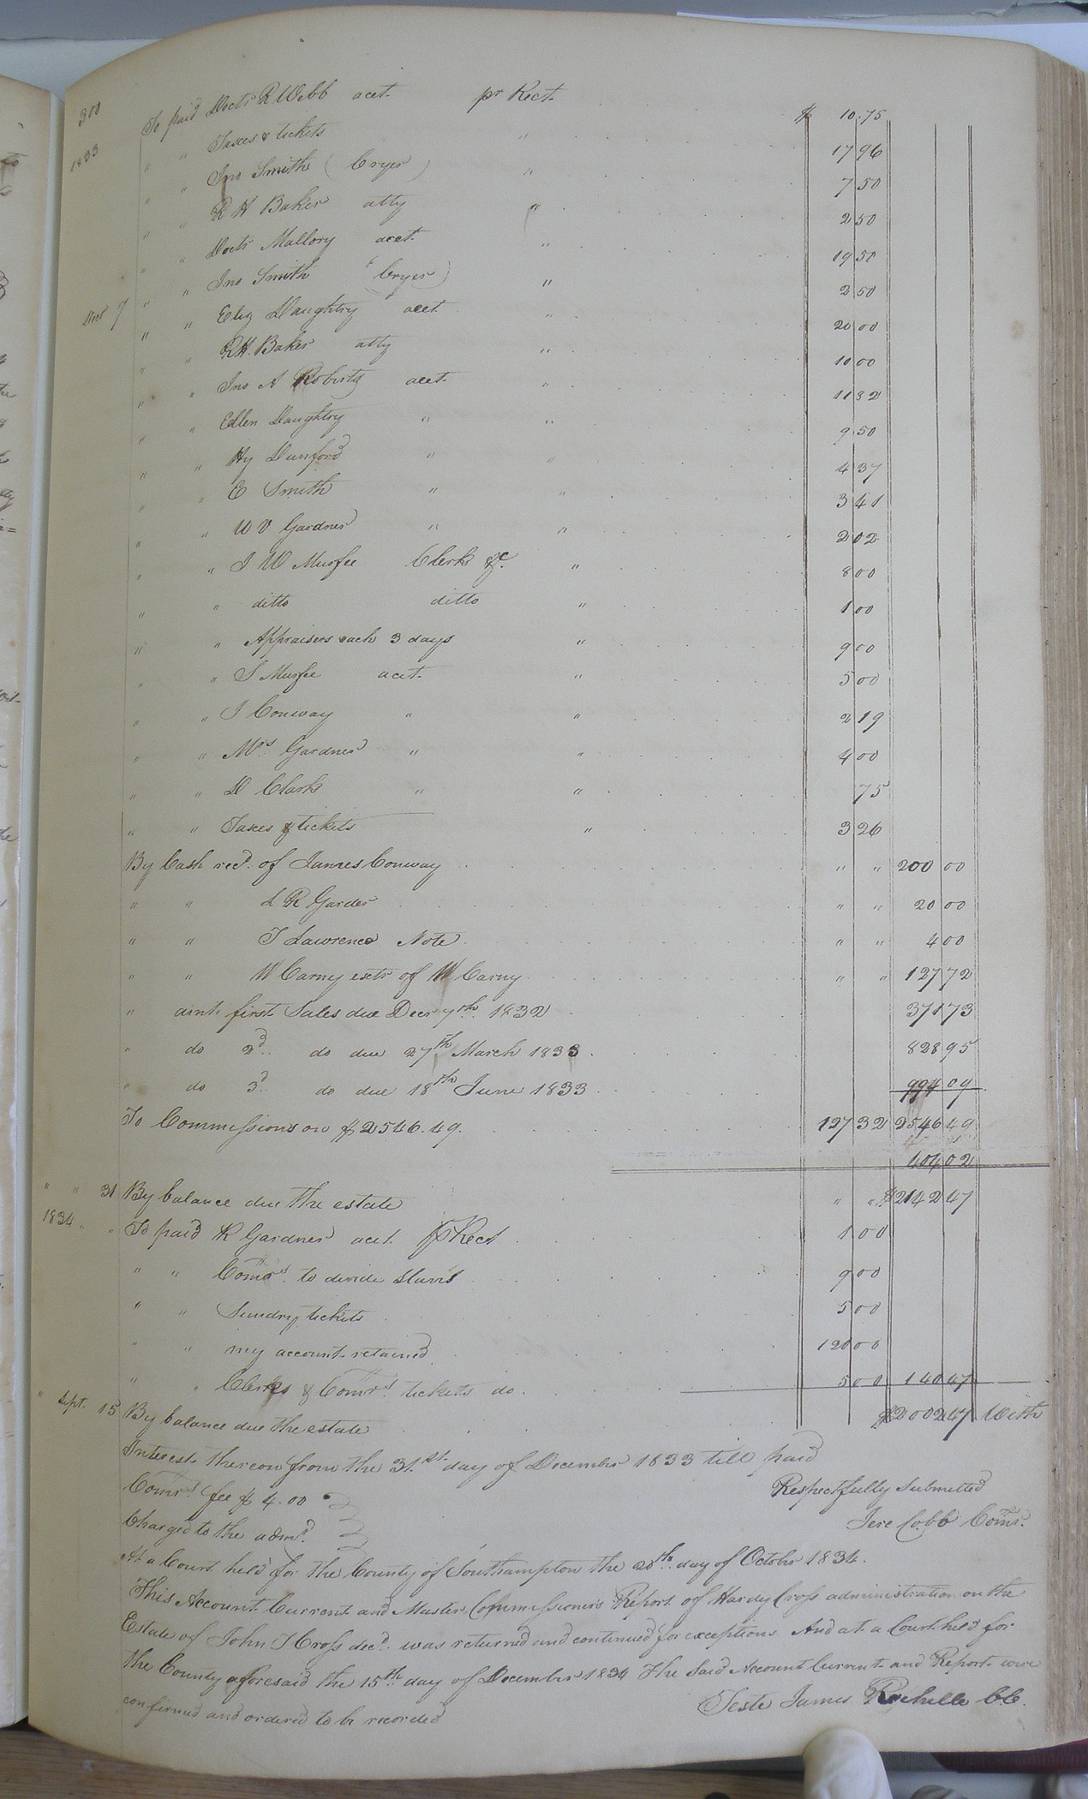 300
1833
To paid Doctr R Webb acct. pr Rect. $ 10.75
" " Taxes & tickets " 17 96
" " Jno Smith (Cryer) " 7 50
" " R H Baker atty " 2 50
" " Doctr Mallory acct. " 19 50
" " Jno Smith (Cryer) " 2 50
Decr 7 " " Eliz Daughtry acct " 20 00
" " R H. Baker atty " 10 00
" " Jno A Roberts acct. " 11 82
" " Ellen Daughtry " " 9 50
" " Hy Dunford " " 4 37
" " E Smith " " 3 41
" " W V Gardner " " 2 02
" " J W Murfee Clerks &c. " 8 00
" " ditto ditto " 1 00
" " Appraisers each 3 days " 9 00
" " S Murfee acct. " 5 00
" " J Conway " " 2 19
" " Mrs Gardner " " 4 00
" " D Clark " " 75
" " Taxes & tickets " 3 26
By Cash recd. of James Conway " " 200 00
" " L R Garder " " 20 00
" " T Lawrence Note " " 4 00
" " W Carny exts of W Carny " " 127 72
" amt. first Sales due Decr 7th 1832 371 73
" do 2d. do due 27th March 1833 828 95
" do 3d. do due 18th June 1833 994 09
To Commissions on $2546.49. 127 32 2546 49
404 02
" " 31 By balance due the estate " " $2142 47
1834 " " To paid R Gardner acct. pr Rect 1 00
" " Comrs. to divide slaves 9 00
" " Sundry tickets 5 00
" " my account retained 120 00
" " Clerks & Comrs. tickets do. 5 00 140 47
" Sept. 15 By balance due the estate $2002 47 With
Interest thereon from the 31.st day of December 1833 till paid
Comrs fee $ 4.00 Respectfully Submitted
Charged to the admr. Jere Cobb Comr.
At a Court held for the County of Southampton the 20th day of October 1834.
This Account Current and Master Commissioners Report of Hardy Cross administration on the
Estate of John T Cross decd. was returned and continued for exceptions And at a Court held for
the County aforesaid the 15th day of December 1834 The Said Account Current and Report were
confirmed and ordered to be recorded
Teste James Rochelle CC.